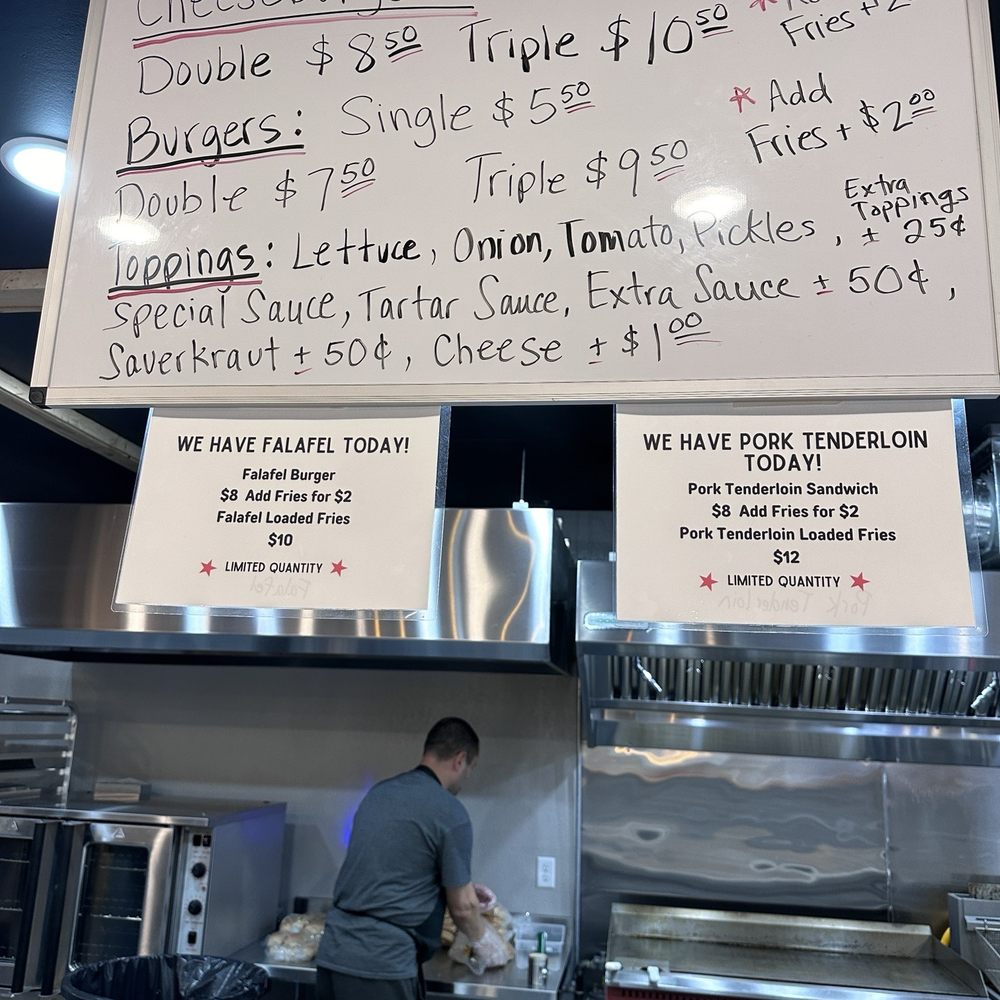 Cheeseburgers
Double $8.50 Triple $10.50 Fries + 2
Burgers: Single $5.50 * Add
Fries + $2.00
Double $7.50 Triple $9.50
Extra
Toppings
± 25¢
Toppings: Lettuce, Onion, Tomato, Pickles,
Special Sauce, Tartar Sauce, Extra Sauce ± 50¢,
Sauerkraut ± 50¢, Cheese ± $1.00
WE HAVE FALAFEL TODAY!
Falafel Burger
$8 Add Fries for $2
Falafel Loaded Fries
$10
★ LIMITED QUANTITY ★
Falafel
WE HAVE PORK TENDERLOIN
TODAY!
Pork Tenderloin Sandwich
$8 Add Fries for $2
Pork Tenderloin Loaded Fries
$12
★ LIMITED QUANTITY ★
Pork Tenderloin